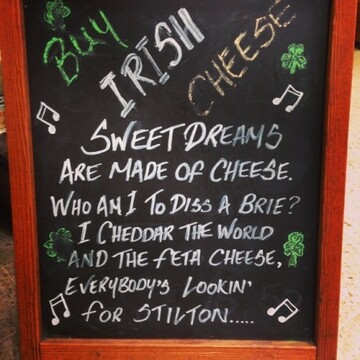 BUY
IRISH
CHEESE
SWEET DREAMS
ARE MADE OF CHEESE.
WHO AM I TO DISS A BRIE?
I CHEDDAR THE WORLD
AND THE FETA CHEESE,
EVERYBODY'S LOOKIN'
FOR STILTON.....